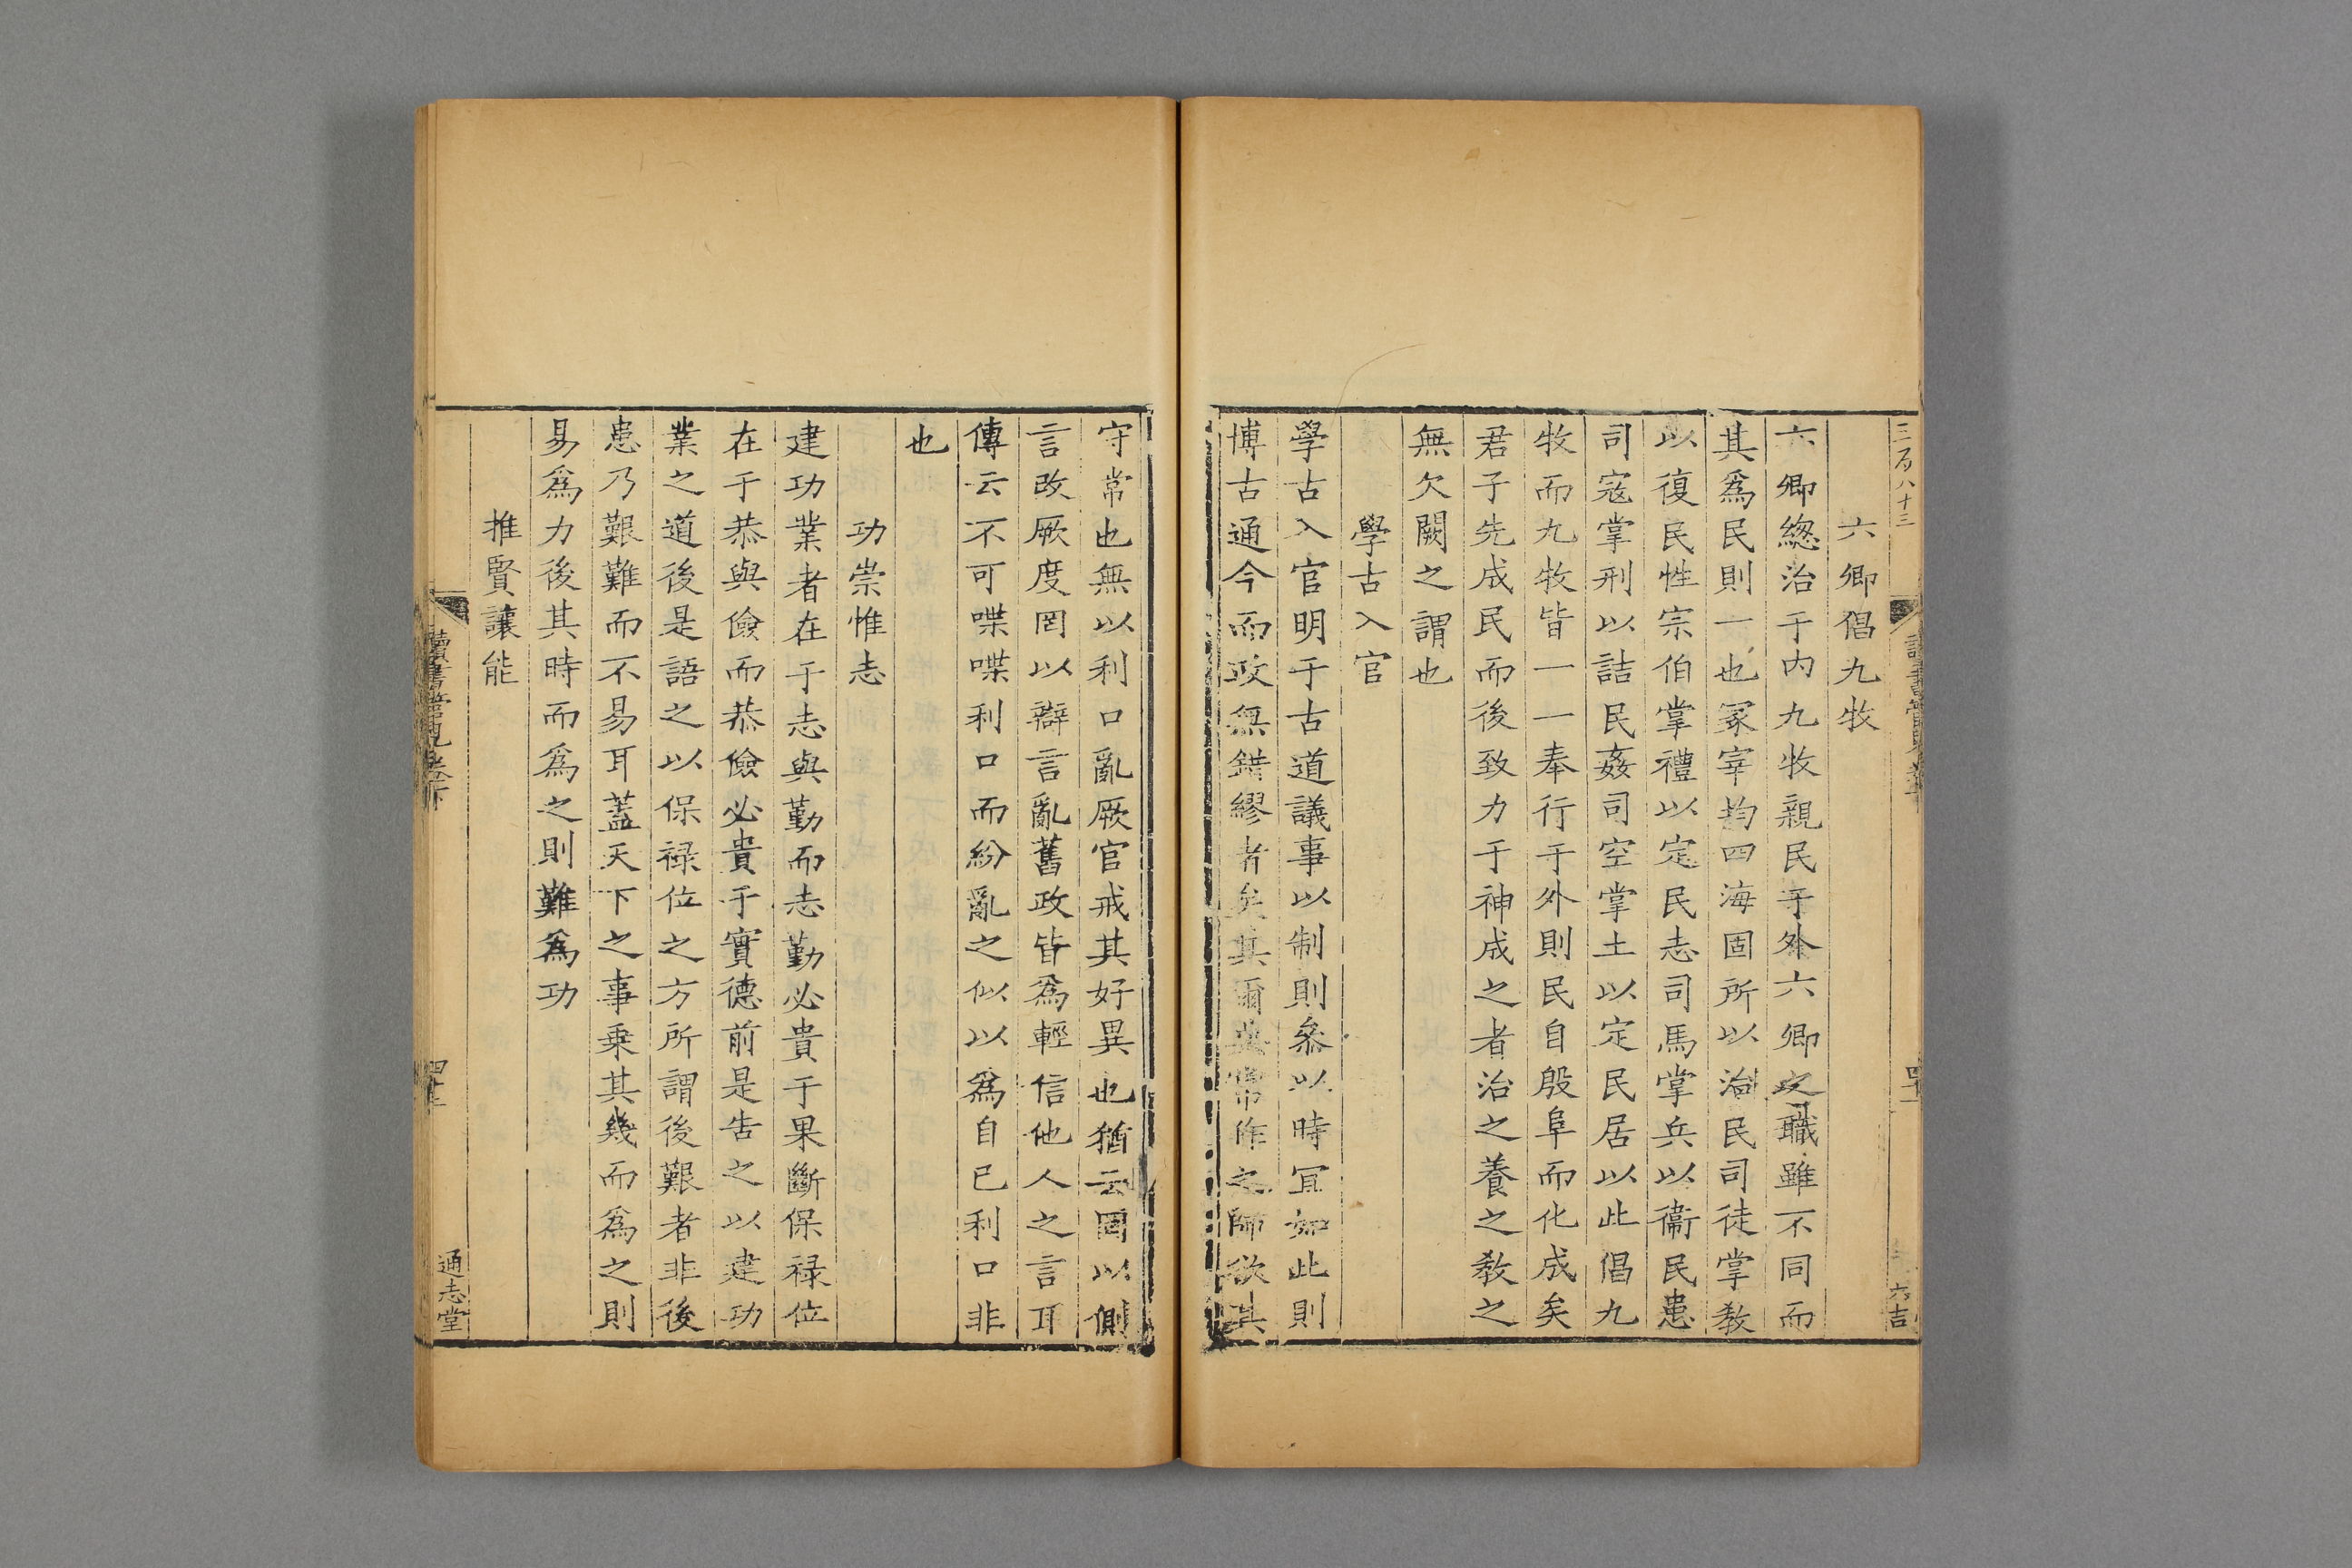 三百八十三
六吉
六卿倡九牧
六卿總治于内九牧親民于外六卿之職雖不同而
其爲民則一也冢宰均四海固所以治民司徒掌敎
以復民性宗伯掌禮以定民志司馬掌兵以衞民患
司寇掌刑以詰民姦司空掌土以定民居以此倡九
牧而九牧皆一一奉行于外則民自殷阜而化成矣
君子先成民而後致力于神成之者治之養之敎之
無欠闕之謂也
學古入官
學古入官明于古道議事以制則叅以時冝如此則
博古通今而政無錯繆者矣其爾典常作之師欲其
守常也無以利口亂厥官戒其好異也猶云罔以側
言改厥度罔以辯言亂舊政皆爲輕信他人之言耳
傳云不可喋喋利口而紛亂之似以爲自已利口非
也
功崇惟志
建功業者在于志與勤而志勤必貴于果斷保禄位
在于恭與儉而恭儉必貴于實德前是告之以建功
業之道後是語之以保禄位之方所謂後艱者非後
患乃艱難而不易耳蓋天下之事乗其幾而爲之則
易爲力後其時而爲之則難爲功
推賢讓能
讀書管見卷下
通志堂